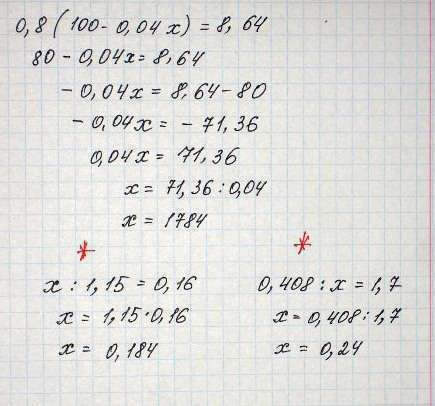 0,8(100-0,04x)=8,64
80-0,04x=8,64
-0,04x=8,64-80
-0,04x=-71,36
0,04x=71,36
x=71,36:0,04
x=1784
* *
x:1,15=0,16
x=1,15·0,16
x=0,184
0,408:x=1,7
x=0,408:1,7
x=0,24